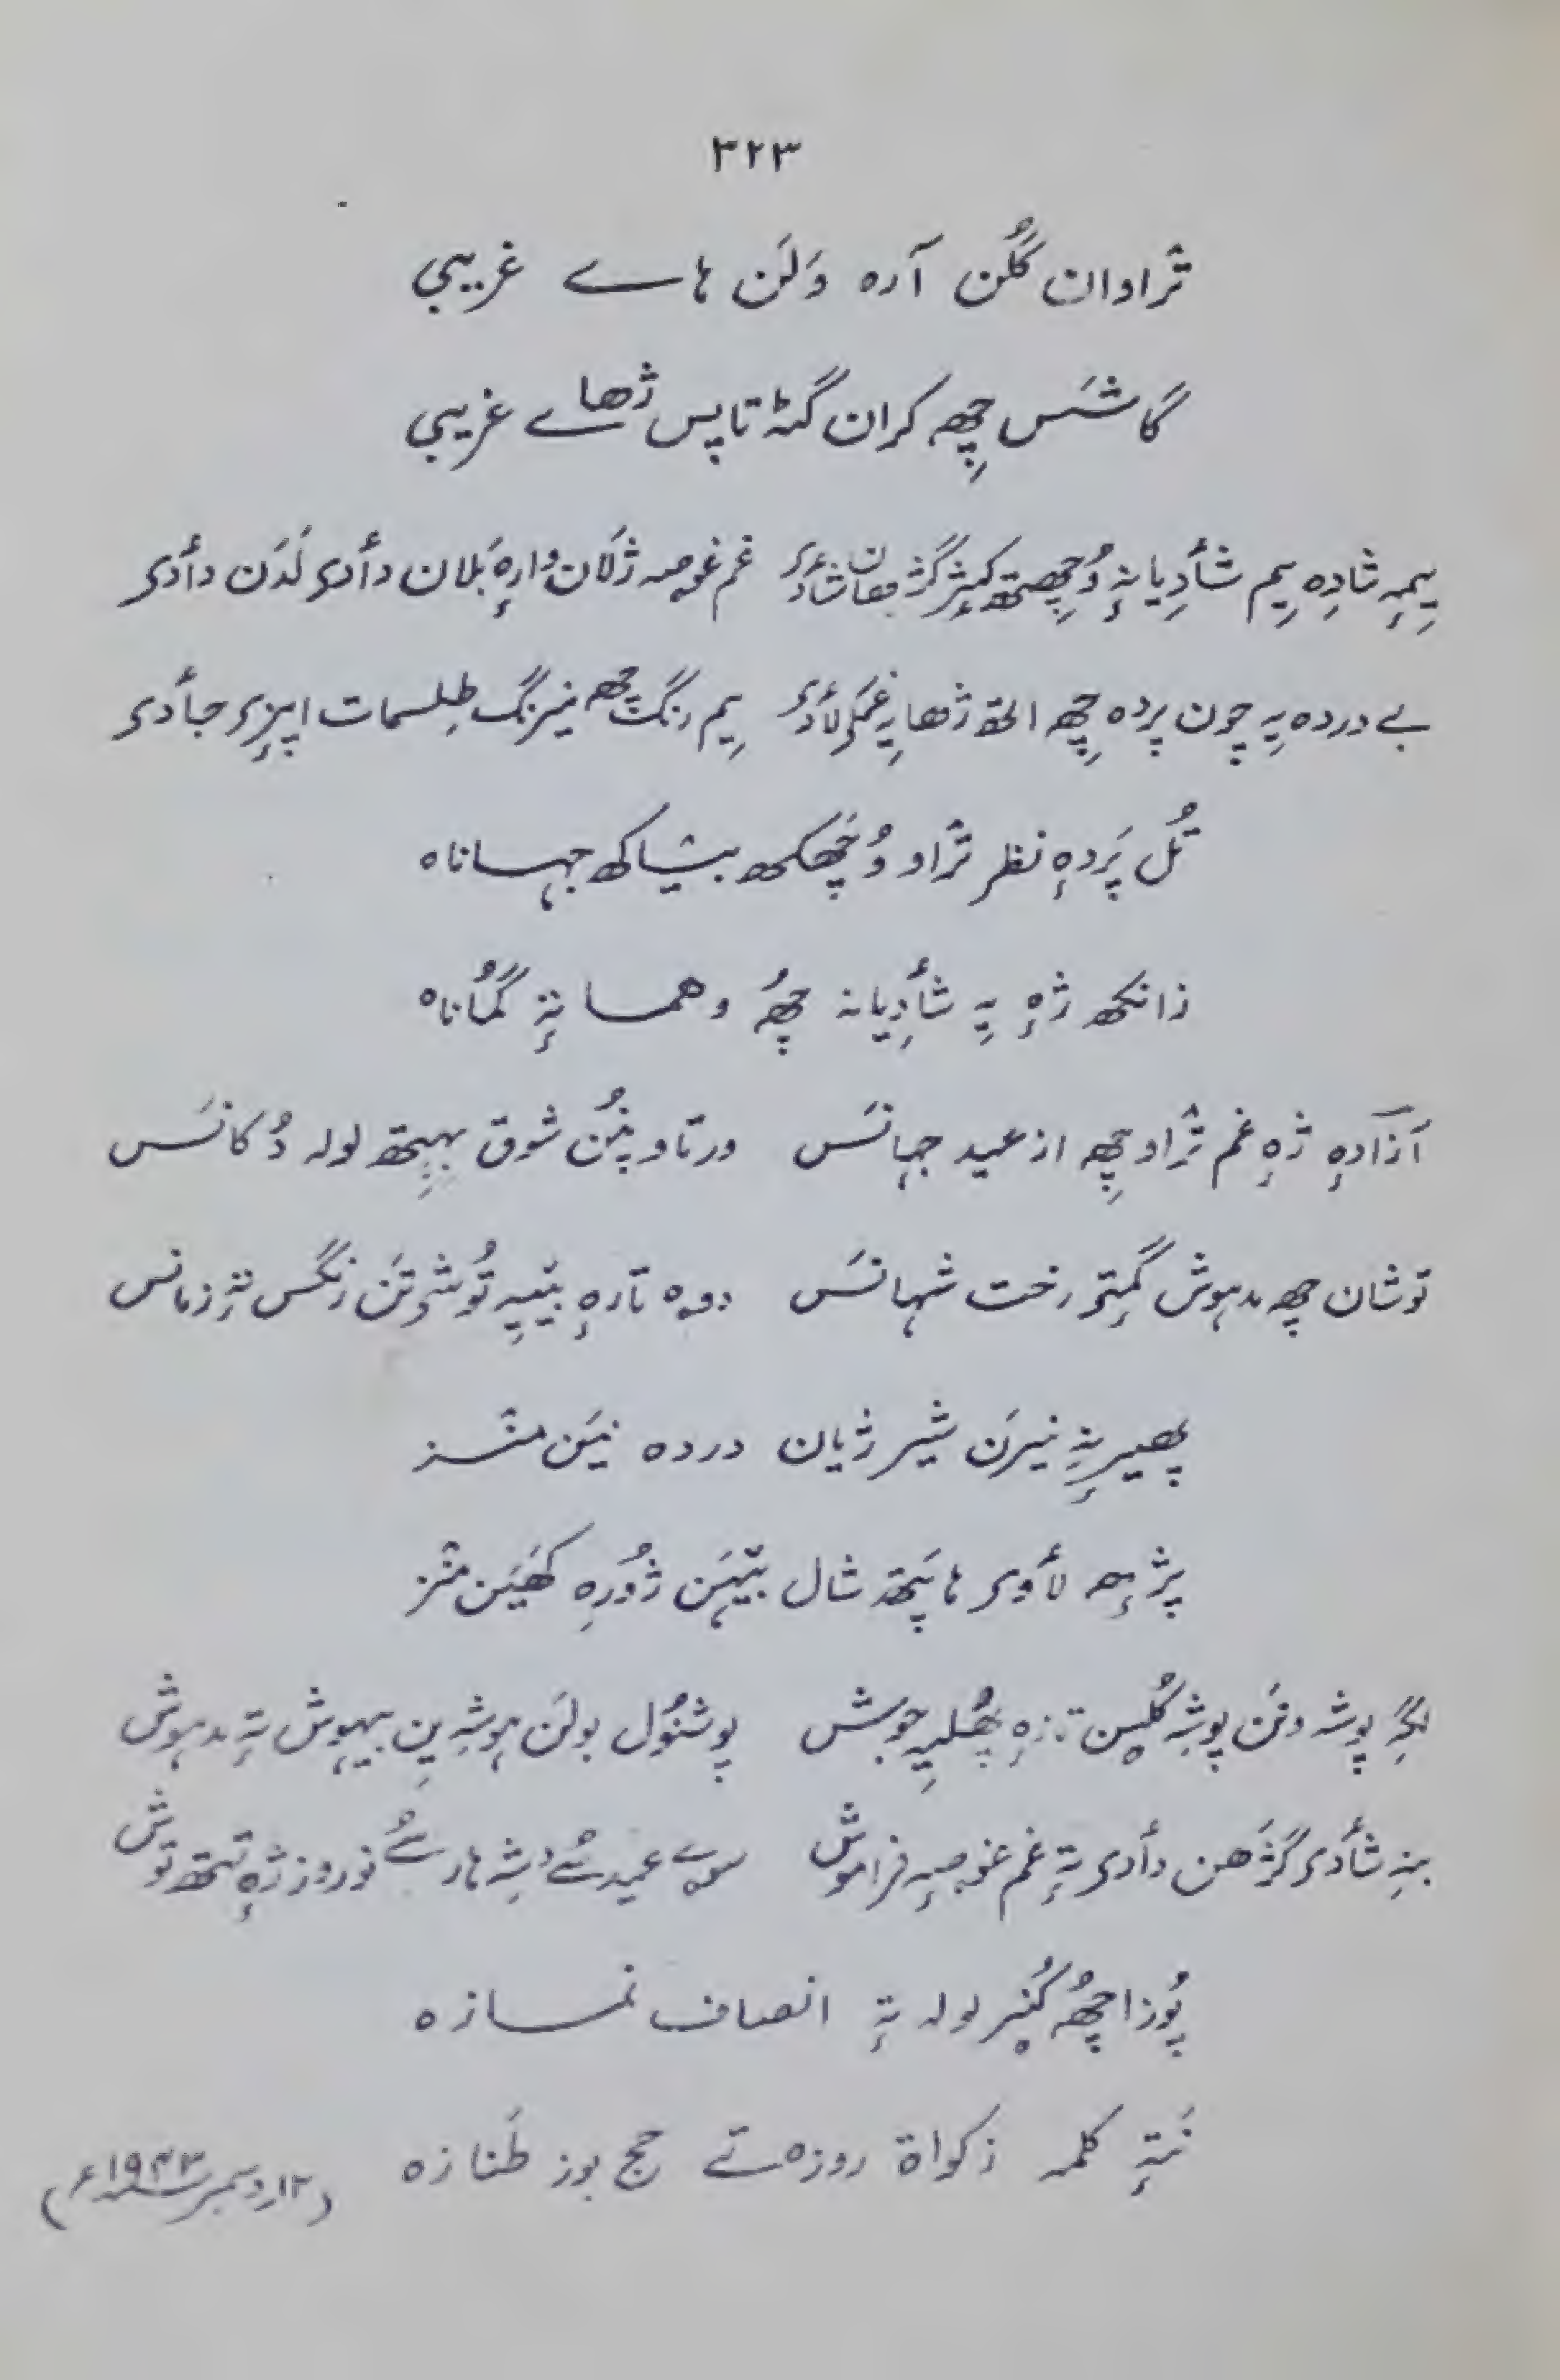 ۳۲۳
تراوان گُلن آرہ وَلَن ہاے غریبی
گاشَس چِھ کران گٹہ تاپس ژھاے غریبی
یِمہٕ شادِہ یِم شأدِیانہٕ وُچِھتھ غم غوصہ ژلان وارٕہ بَلان دأدی لَدَن دأدی
بے دردہ یہِ چون پردہ چِھ ژھایہِ یِم رنگ چھ نیرنگ طِلسمات اپزِی جأدی
تُل پَردہٕ نظر تراو وُچھکھ بیٛاکھ جہاناہ
زانکھ ژہٕ یہِ شأدِیانہ چھُ وهما نتہٕ گُماناہ
آزادہٕ ژہٕ غم تراو چِھ از عید جہانَس ورتاو پنُن شوق بہِتھ لولہ دُکانَس
توشان چھ مدہوش گمِتی رخت شہانَس دوہ تارہٕ ییٚیہِ توٚش وتَن زنگس تہٕ زمانس
پھیرنہٕ نیرَن شیر ژیان دردہ نیَن منٛز
پژہٕ لأوی ہاپَتھ شال بیٚہَن ژوٗرِہ کھیَن منٛز
پوشہ وَنَن پوشہِ گُلِس تازہٕ پھُلیہِ جوش پوشنوٗل بولَن ہوشہِ یِن بیہوش تہٕ مدہوش
بنہِ شأدی گژَھن دأدی تہٕ غم غوصہٕ فراموش سوے عید سُے دیٚشہ ہار سُے نوروز ژہٕ تیٚتھ توش
پوٗزا چھُ کُنُے لولہ تہٕ انصاف نمازہ
نَتہٕ کلمہ زکواۃ روزہ تے حج بوز طَنازہ
(۱۲ر دسمبر ۱۹۴۳ء)